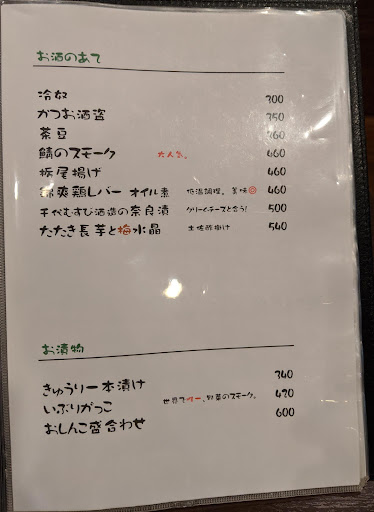 お酒のあて
冷奴 300
かつお酒盗 350
茶豆 360
鯖のスモーク 大人気。 460
栃尾揚げ 460
錦爽鶏レバー オイル煮 低温調理。美味◎ 460
千代むすび酒造の奈良漬 クリームチーズと合う! 500
たたき長芋と梅水晶 土佐酢掛け 540
お漬物
きゅうり一本漬け 340
いぶりがっこ 世界で唯一、野菜のスモーク。 420
おしんこ盛合わせ 600